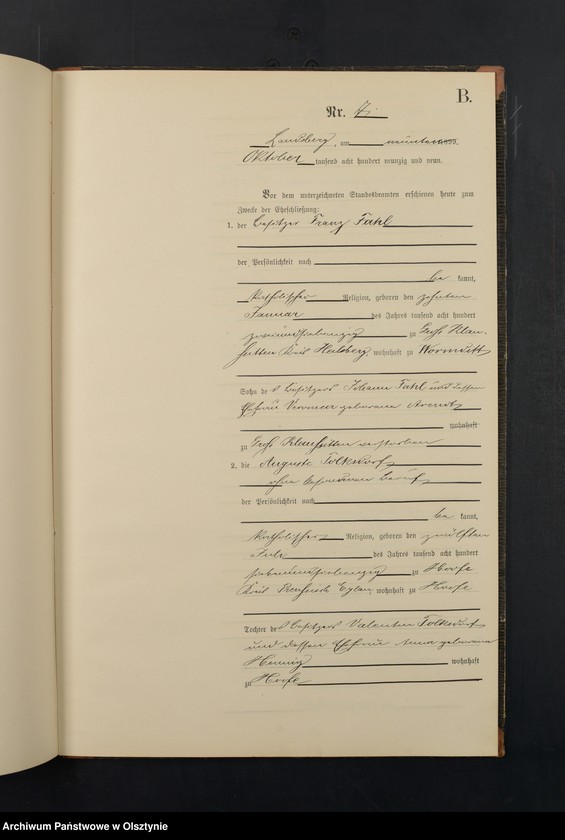 B.
Nr. 7
Landsberg, am neunten
Oktober tausend acht hundert neunzig und neun.
Vor dem unterzeichneten Standesbeamten erschienen heute zum
Zwecke der Eheschließung:
1. der Besitzer Franz Fahl
der Persönlichkeit nach
be kannt,
katholischer Religion, geboren den zehnten
Januar des Jahres tausend acht hundert
zweiundsiebenzig zu Groß Klau-
sitten Kreis Heilsberg, wohnhaft zu Wormditt
Sohn des Besitzers Johann Fahl und dessen
Ehefrau geborenen Arendt
wohnhaft
zu Groß Klausitten verstorben
2. die Auguste Tolksdorf
ohne besonderen Beruf
der Persönlichkeit nach
be kannt,
katholischer Religion, geboren den zwölften
Juli des Jahres tausend acht hundert
siebenundsiebenzig zu Hoofe
Kreis Preußisch Eylau, wohnhaft zu Hoofe
Tochter des Besitzers Valentin Tolksdorf
und dessen Ehefrau Anna geborenen
Hennig wohnhaft
zu Hoofe
Archiwum Państwowe w Olsztynie